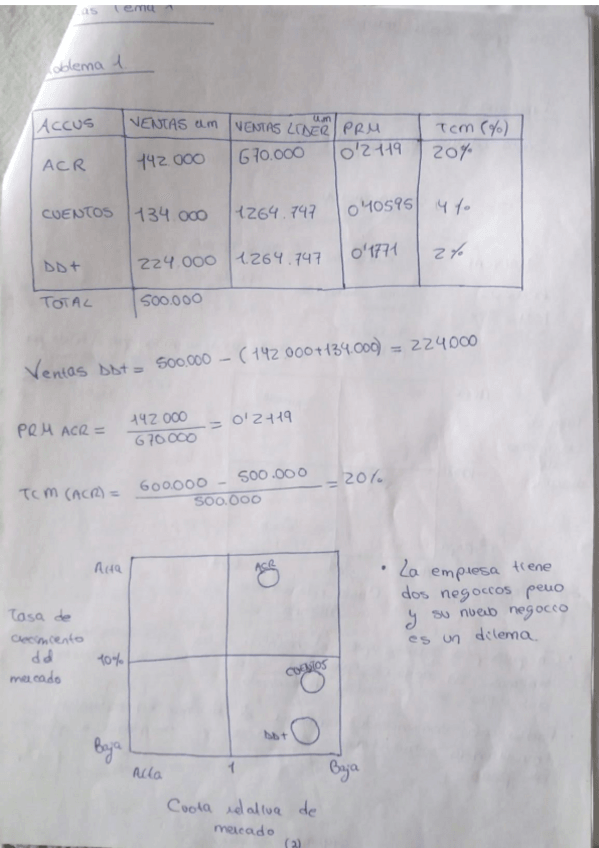 as Tema 1
oblema 1
ACCUS VENTAS um VENTAS LÍDER um PRM TCM (%)
ACR 142.000 670.000 0'2119 20%
CUENTOS 134.000 1264.747 0'10595 4%
DD+ 224.000 1.264.747 0'1771 2%
TOTAL 500.000
Ventas DD+ = 500.000 - (142.000+134.000) = 224000
PRM ACR = 142 000 / 670000 = 0'2119
TCM (ACR) = 600.000 - 500.000 / 500.000 = 20%
Alta
ACR
Tasa de
crecimiento
del
mercado
10%
CUENTOS
DD+
Baja
Alta 1 Baja
Cuota relativa de
mercado
(2)
• La empresa tiene
dos negocios perro
y su nuevo negocio
es un dilema.